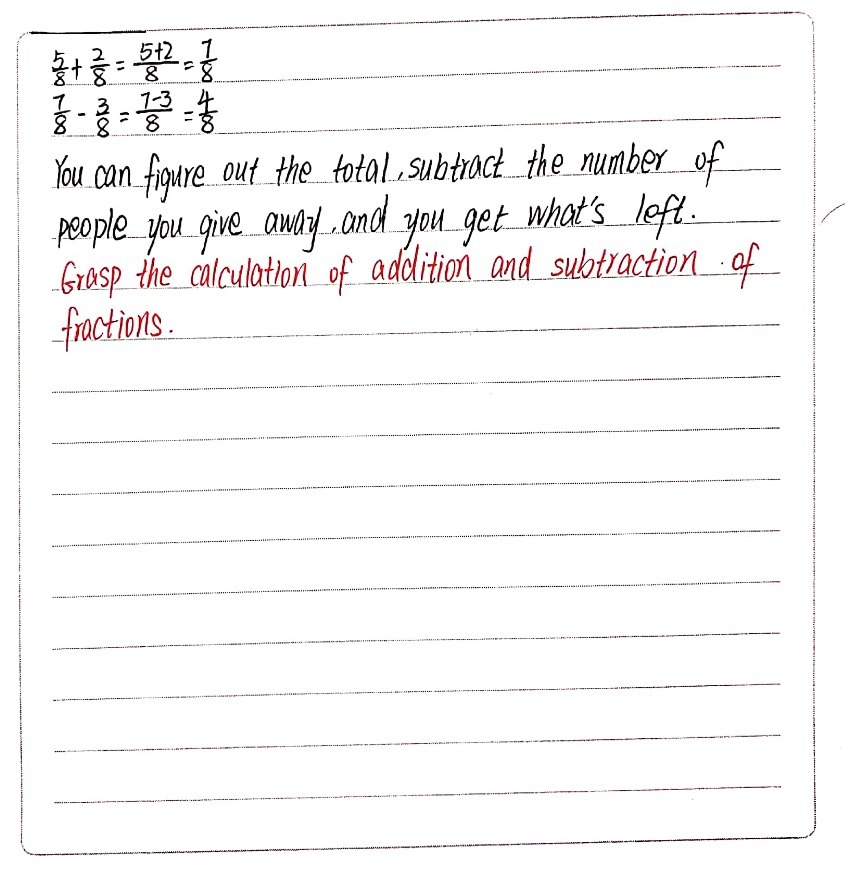 5/8 + 2/8 = 5+2/8 = 7/8
7/8 - 3/8 = 7-3/8 = 4/8
You can figure out the total, subtract the number of
people you give away, and you get what's left.
Grasp the calculation of addition and subtraction of
fractions.